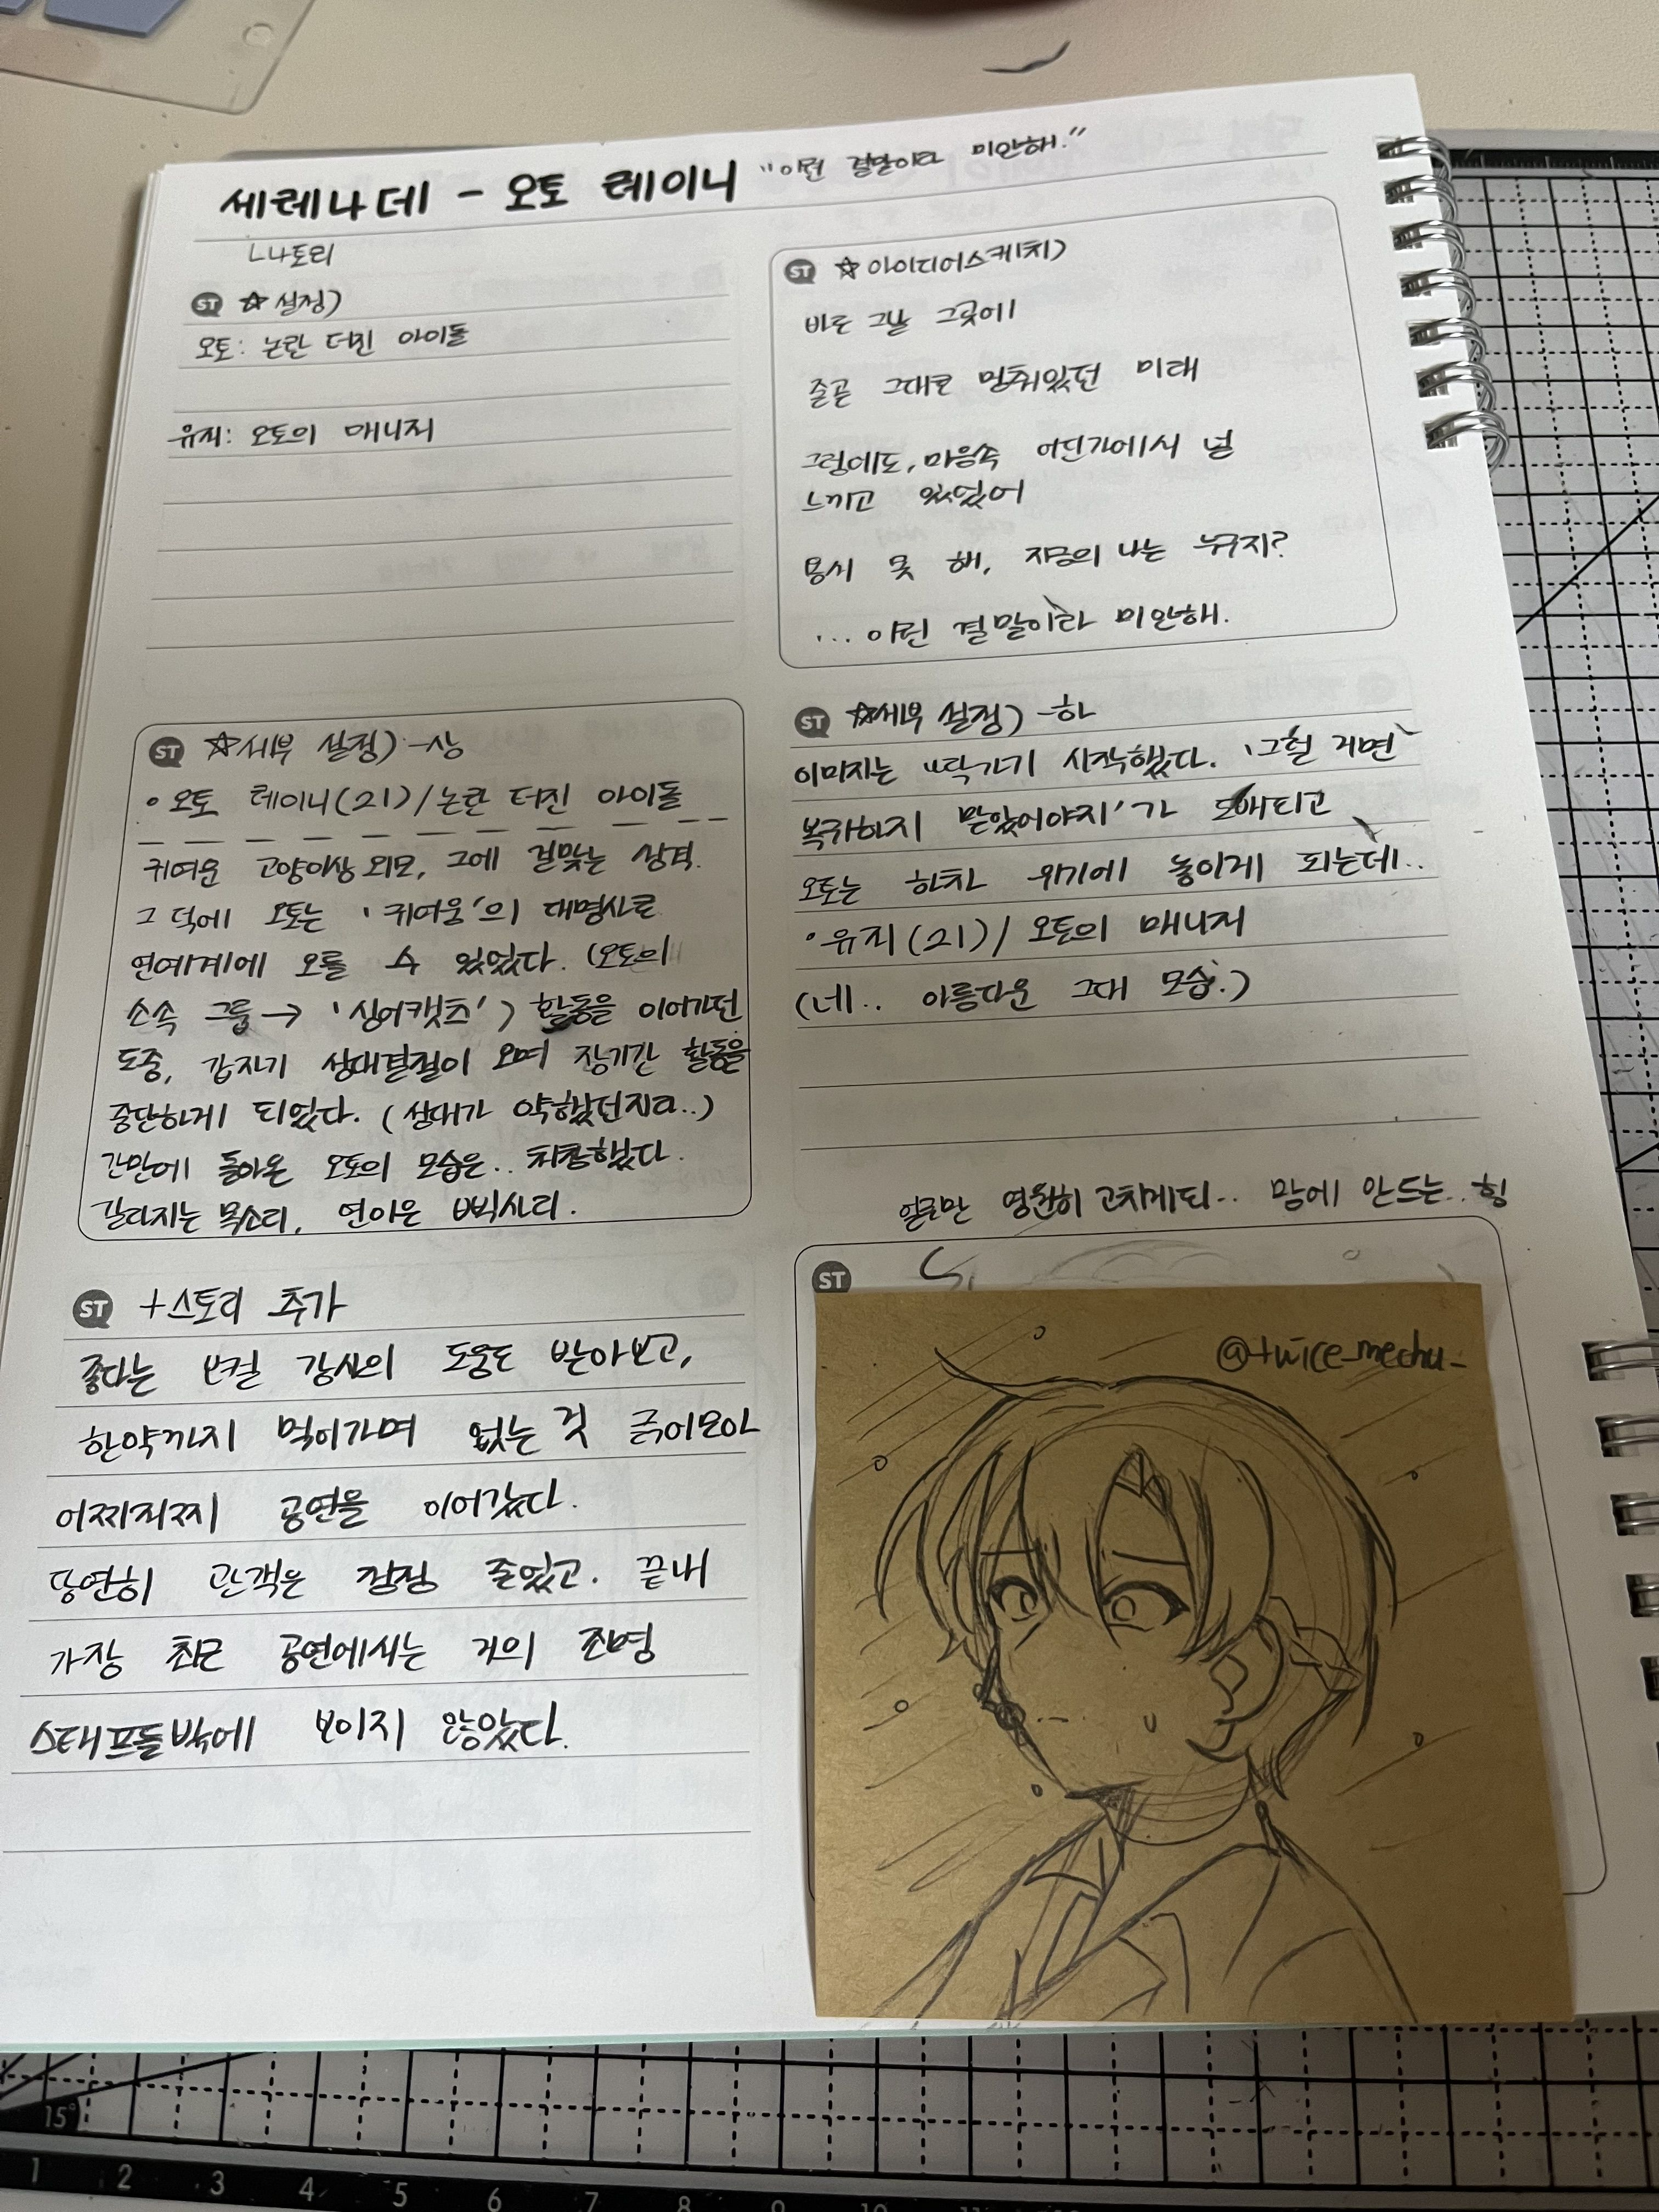 세레나데 - 오토 레이니 "이런 결말이라 미안해."
ㄴ나토리
ST ☆설정)
오토: 논란 터진 아이돌
유지: 오토의 매니저
ST ☆아이디어스케치)
바로 그날 그곳에
줄곧 그대로 멈춰있던 미래
그럼에도, 마음속 어딘가에서 널
느끼고 있었어
용서 못 해, 지금의 나는 누구지?
... 이런 결말이라 미안해.
ST ☆세부 설정) -상
• 오토 레이니(21)/논란 터진 아이돌
귀여운 고양이상 외모, 그에 걸맞는 성격.
그 덕에 오토는 '귀여움'의 대명사로
연예계에 오를 수 있었다. (오토의
소속 그룹→ '싱어캣츠') 활동을 이어가던
도중, 갑자기 성대결절이 오며 장기간 활동을
중단하게 되었다. (성대가 약했던지라..)
간만에 돌아온 오토의 모습은.. 처참했다.
갈라지는 목소리, 연이은 삑사리.
ST ☆세부 설정) -하
이미지는 떡가기 시작했다. '그럴 거면
복귀하지 말았어야지'가 도배되고
오토는 하차 위기에 놓이게 되는데..
• 유지(21)/ 오토의 매니저
(네.. 아름다운 그대 모습.)
ST +스토리 추가
좋다는 보컬 강사의 도움도 받아보고,
한약까지 먹어가며 없는 것 긁어모아
어찌저찌 공연을 이어갔다.
당연히 관객은 점점 줄었고. 끝내
가장 최근 공연에서는 거의 조명
스태프들밖에 보이지 않았다.
얼굴만 영원히 고치게되.. 맘에 안드는.. 힝
ST
@twice_mechu_
15°
1 2 3 4 5 6 7 8 9 10